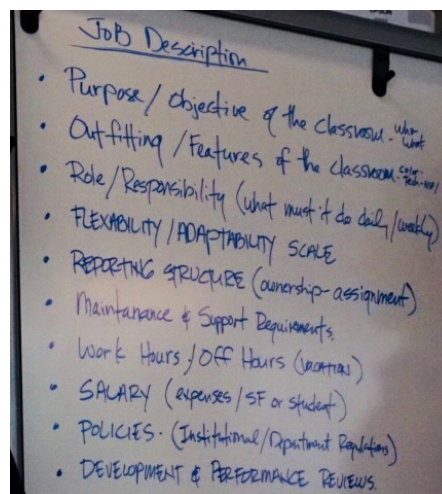 Job Description
• Purpose / Objective of the classroom - who what
• Outfitting / Features of the classroom -
• Role/Responsibility (what must it do daily/weekly)
• FLEXABILITY / ADAPTABILITY SCALE
• REPORTING STRUCTURE (ownership - assignment)
• Maintanance & Support Requirements.
• Work Hours / Off Hours (VACATION)
• SALARY (expenses / SF or student)
• POLICIES. (Institutional / Department Regulations)
• DEVELOPMENT & PERFORMANCE REVIEWS.